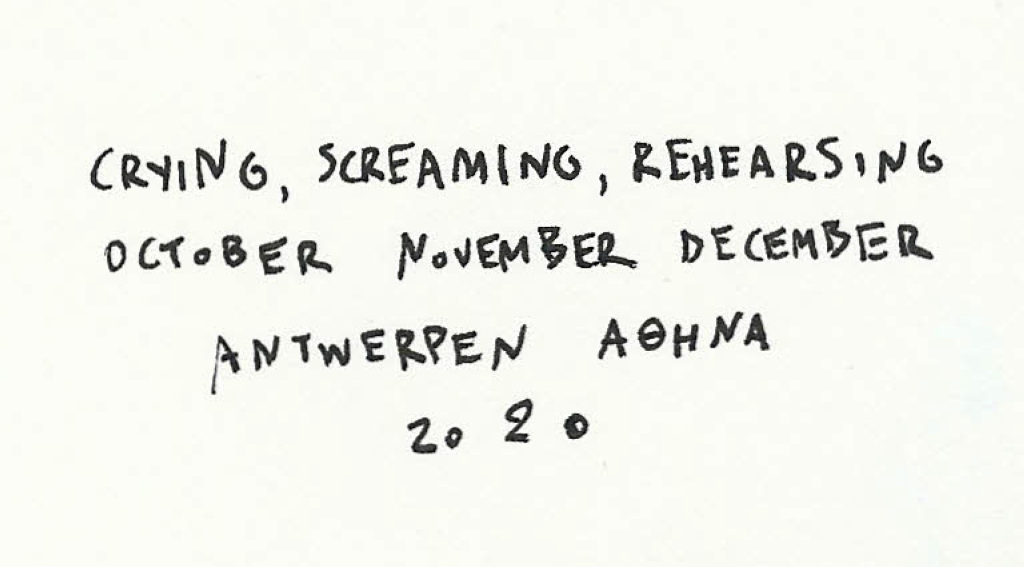 CRYING, SCREAMING, REHEARSING
OCTOBER NOVEMBER DECEMBER
ANTWERPEN ΑΘΗΝΑ
2020